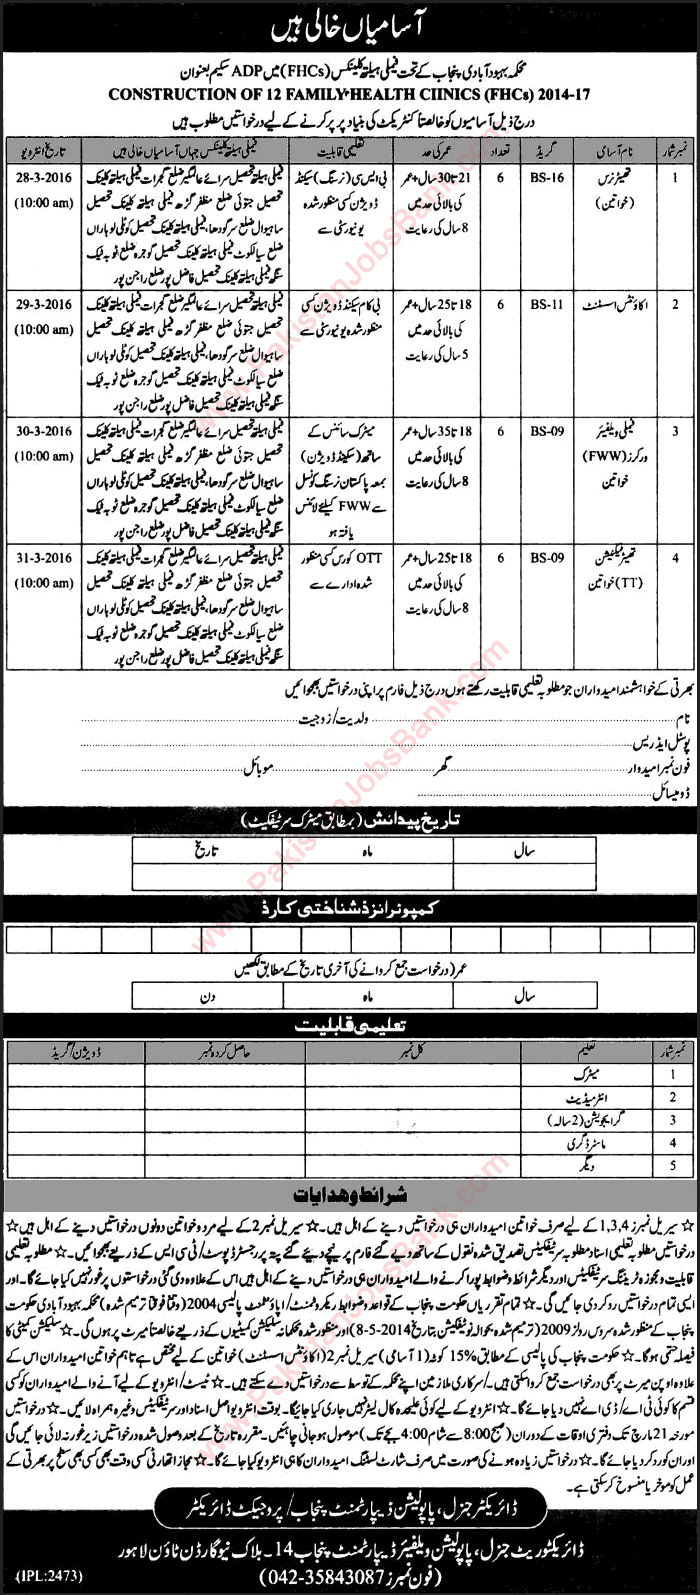 آسامیاں خالی ہیں
محکمہ بہبود آبادی پنجاب کے تحت فیملی ہیلتھ کلینکس (FHCs) میں ADP سکیم بعنوان
CONSTRUCTION OF 12 FAMILY HEALTH CIINICS (FHCs) 2014-17
درج ذیل آسامیوں کو خالصتاً کنٹریکٹ کی بنیاد پر پر کرنے کے لیے درخواستیں مطلوب ہیں
نمبر شمار نام آسامی گریڈ تعداد عمر کی حد تعلیمی قابلیت فیملی ہیلتھ کلینکس جہاں آسامیاں خالی ہیں تاریخ انٹرویو
1 تھیٹر نرس (خواتین) BS-16 6 21 تا 30 سال + عمر کی بالائی حد میں 8 سال کی رعایت بی ایس سی (نرسنگ) سیکنڈ ڈویژن کسی منظور شدہ یونیورسٹی سے فیملی ہیلتھ کلینک تحصیل سرائے عالمگیر ضلع گجرات فیملی ہیلتھ کلینک تحصیل جتوئی ضلع مظفر گڑھ فیملی ہیلتھ کلینک تحصیل ساہیوال ضلع سرگودھا، فیملی ہیلتھ کلینک تحصیل کوٹلی لوہاراں ضلع سیالکوٹ فیملی ہیلتھ کلینک تحصیل گوجرہ ضلع ٹوبہ ٹیک سنگھ فیملی ہیلتھ کلینک تحصیل فاضل پور ضلع راجن پور 28-3-2016 (10:00 am)
2 اکاؤنٹس اسسٹنٹ BS-11 6 18 تا 25 سال + عمر کی بالائی حد میں 5 سال کی رعایت بی کام سیکنڈ ڈویژن کسی منظور شدہ یونیورسٹی سے فیملی ہیلتھ کلینک تحصیل سرائے عالمگیر ضلع گجرات فیملی ہیلتھ کلینک تحصیل جتوئی ضلع مظفر گڑھ فیملی ہیلتھ کلینک تحصیل ساہیوال ضلع سرگودھا، فیملی ہیلتھ کلینک تحصیل کوٹلی لوہاراں ضلع سیالکوٹ فیملی ہیلتھ کلینک تحصیل گوجرہ ضلع ٹوبہ ٹیک سنگھ فیملی ہیلتھ کلینک تحصیل فاضل پور ضلع راجن پور 29-3-2016 (10:00 am)
3 فیملی ویلفیئر ورکرز (FWW) خواتین BS-09 6 18 تا 35 سال + عمر کی بالائی حد میں 8 سال کی رعایت میٹرک سائنس کے ساتھ (سیکنڈ ڈویژن) بمعہ پاکستان نرسنگ کونسل سے FWW کیلئے لائسنس یافتہ ہو فیملی ہیلتھ کلینک تحصیل سرائے عالمگیر ضلع گجرات فیملی ہیلتھ کلینک تحصیل جتوئی ضلع مظفر گڑھ فیملی ہیلتھ کلینک تحصیل ساہیوال ضلع سرگودھا، فیملی ہیلتھ کلینک تحصیل کوٹلی لوہاراں ضلع سیالکوٹ فیملی ہیلتھ کلینک تحصیل گوجرہ ضلع ٹوبہ ٹیک سنگھ فیملی ہیلتھ کلینک تحصیل فاضل پور ضلع راجن پور 30-3-2016 (10:00 am)
4 تھیٹر ٹیکنیشن (TT) خواتین BS-09 6 18 تا 25 سال + عمر کی بالائی حد میں 8 سال کی رعایت OTT کورس کسی منظور شدہ ادارے سے فیملی ہیلتھ کلینک تحصیل سرائے عالمگیر ضلع گجرات فیملی ہیلتھ کلینک تحصیل جتوئی ضلع مظفر گڑھ فیملی ہیلتھ کلینک تحصیل ساہیوال ضلع سرگودھا، فیملی ہیلتھ کلینک تحصیل کوٹلی لوہاراں ضلع سیالکوٹ فیملی ہیلتھ کلینک تحصیل گوجرہ ضلع ٹوبہ ٹیک سنگھ فیملی ہیلتھ کلینک تحصیل فاضل پور ضلع راجن پور 31-3-2016 (10:00 am)
بھرتی کے خواہشمند امیدواران جو مطلوبہ تعلیمی قابلیت رکھتے ہوں درج ذیل فارم پر اپنی درخواستیں بھجوائیں
نام ولدیت / زوجیت
پوسٹل ایڈریس
فون نمبر امیدوار گھر موبائل
ڈومیسائل
تاریخ پیدائش (بمطابق میٹرک سرٹیفکیٹ)
سال ماہ تاریخ
کمپوٹرائزڈ شناختی کارڈ
عمر (درخواست جمع کروانے کی آخری تاریخ کے مطابق لکھیں
سال ماہ دن
تعلیمی قابلیت
نمبر شمار تعلیم کل نمبر حاصل کردہ نمبر ڈویژن/گریڈ
1 میٹرک
2 انٹرمیڈیٹ
3 گرایجویشن (2 سالہ)
4 ماسٹر ڈگری
5 دیگر
شرائط و ھدایات
☆ سیریل نمبرز 1,3,4 کے لیے صرف خواتین امیدواران ہی درخواستیں دینے کے اہل ہیں۔ ☆ سیریل نمبر 2 کے لیے مرد و خواتین دونوں درخواستیں دینے کے اہل ہیں ☆
درخواستیں مطلوبہ تعلیمی اسناد مطلوبہ سرٹیفکیٹس تصدیق شدہ نقول کے ساتھ دیے گئے فارم پر نیچے دیئے گئے پتہ پر رجسٹرڈ پوسٹ/ ٹی سی ایس کے ذریعے بھجوائیں۔ ☆ مطلوبہ تعلیمی
قابلیت و مجوزہ ٹریننگ سرٹیفکیٹس اور دیگر شرائط و ضوابط پورا کرنے والے امیدواران ہی درخواستیں دینے کے اہل ہیں اس کے علاوہ دی گئی درخواستوں پر غور نہیں کیا جائے گا۔ اور
ایسی تمام درخواستیں رد کر دی جائیں گی۔ ☆ تمام تقرریاں حکومت پنجاب کے قواعد و ضوابط ریکروٹمنٹ/ اپائنٹمنٹ پالیسی 2004 (وقتاً فوقتاً ترمیم شدہ) محکمہ بہبود آبادی حکومت
پنجاب کے منظور شدہ سروس رولز 2009 (ترمیم شدہ بحوالہ نوٹیفکیشن بتاریخ 8-5-2014) اور منظور شدہ محکمانہ سلیکشن کمیٹیوں کے ذریعے خالصتاً میرٹ پر ہوں گی۔ ☆ سلیکشن کمیٹی کا
فیصلہ حتمی ہو گا۔ ☆ حکومت پنجاب کی پالیسی کے مطابق 15% کوٹہ (1 آسامی) سیریل نمبر 2 (اکاؤنٹس اسسٹنٹ) خواتین کے لیے مختص ہے تاہم خواتین امیدواران اس کے
علاوہ اوپن میرٹ پر بھی درخواست جمع کروا سکتی ہیں۔ ☆ سرکاری ملازمین اپنے محکمہ کے توسط سے درخواستیں دے سکتے ہیں۔ ☆ ٹیسٹ/ انٹرویو کے لیے آنے والے امیدواران کو کسی
قسم کا کوئی ٹی اے/ ڈی اے نہیں دیا جائے گا۔ ☆ انٹرویو کے لیے کوئی علیحدہ کال لیٹر نہیں جاری کیا جائیگا۔ ☆ بوقت انٹرویو اصل اسناد اور سرٹیفکیٹس وغیرہ ہمراہ لائیں۔ ☆ درخواستیں
مورخہ 21 مارچ تک دفتری اوقات کے دوران (صبح 8:00 سے شام 4:00 بجے تک) موصول ہو جانی چاہئیں۔ مقررہ تاریخ کے بعد موصول شدہ درخواستیں زیر غور نہ لائی جائیں گی
اور ان کو رد کر دیا جائے گا۔ ☆ درخواستیں زیادہ ہونے کی صورت میں صرف شارٹ لسٹنگ امیدواران کا ہی انٹرویو کیا جائے گا۔ ☆ مجاز اتھارٹی کسی وقت بھی کسی بھی سطح پر بھرتی کے
عمل کو موخر یا منسوخ کر سکتی ہے۔
ڈائریکٹر جنرل، پاپولیشن ڈیپارٹمنٹ پنجاب/ پروجیکٹ ڈائریکٹر
ڈائریکٹوریٹ جنرل، پاپولیشن ویلفیئر ڈیپارٹمنٹ پنجاب 14۔ بلاک نیو گارڈن ٹاؤن لاہور
(فون نمبرز 042-35843087)
(IPL:2473)
www.PakistanJobsBank.com
www.PakistanJobsBank.com
www.PakistanJobsBank.com